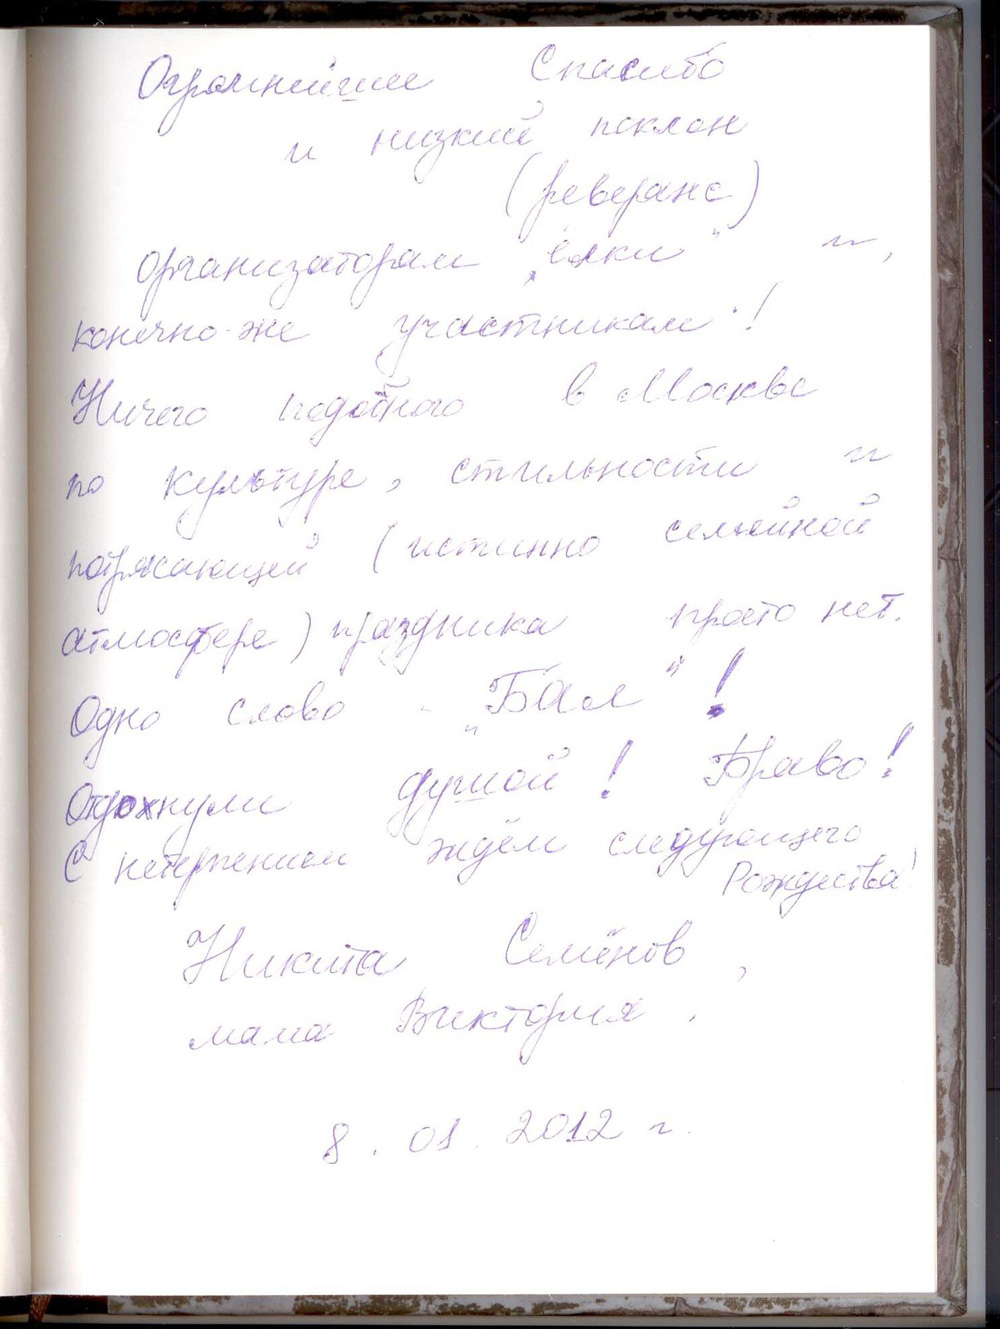 Огромнейшее Спасибо
и низкий поклон
(реверанс)
организаторам „ёлки" и,
конечно-же участникам!
Ничего подобного в Москве
по культуре, стильности и
потрясающей (истинно семейной
атмосфере) праздника просто нет.
Одно слово - „Бал"!
Отдохнули душой! Браво!
С нетерпением ждём следующего
Рождества!
Никита Семёнов,
мама Виктория.
8.01.2012 г.